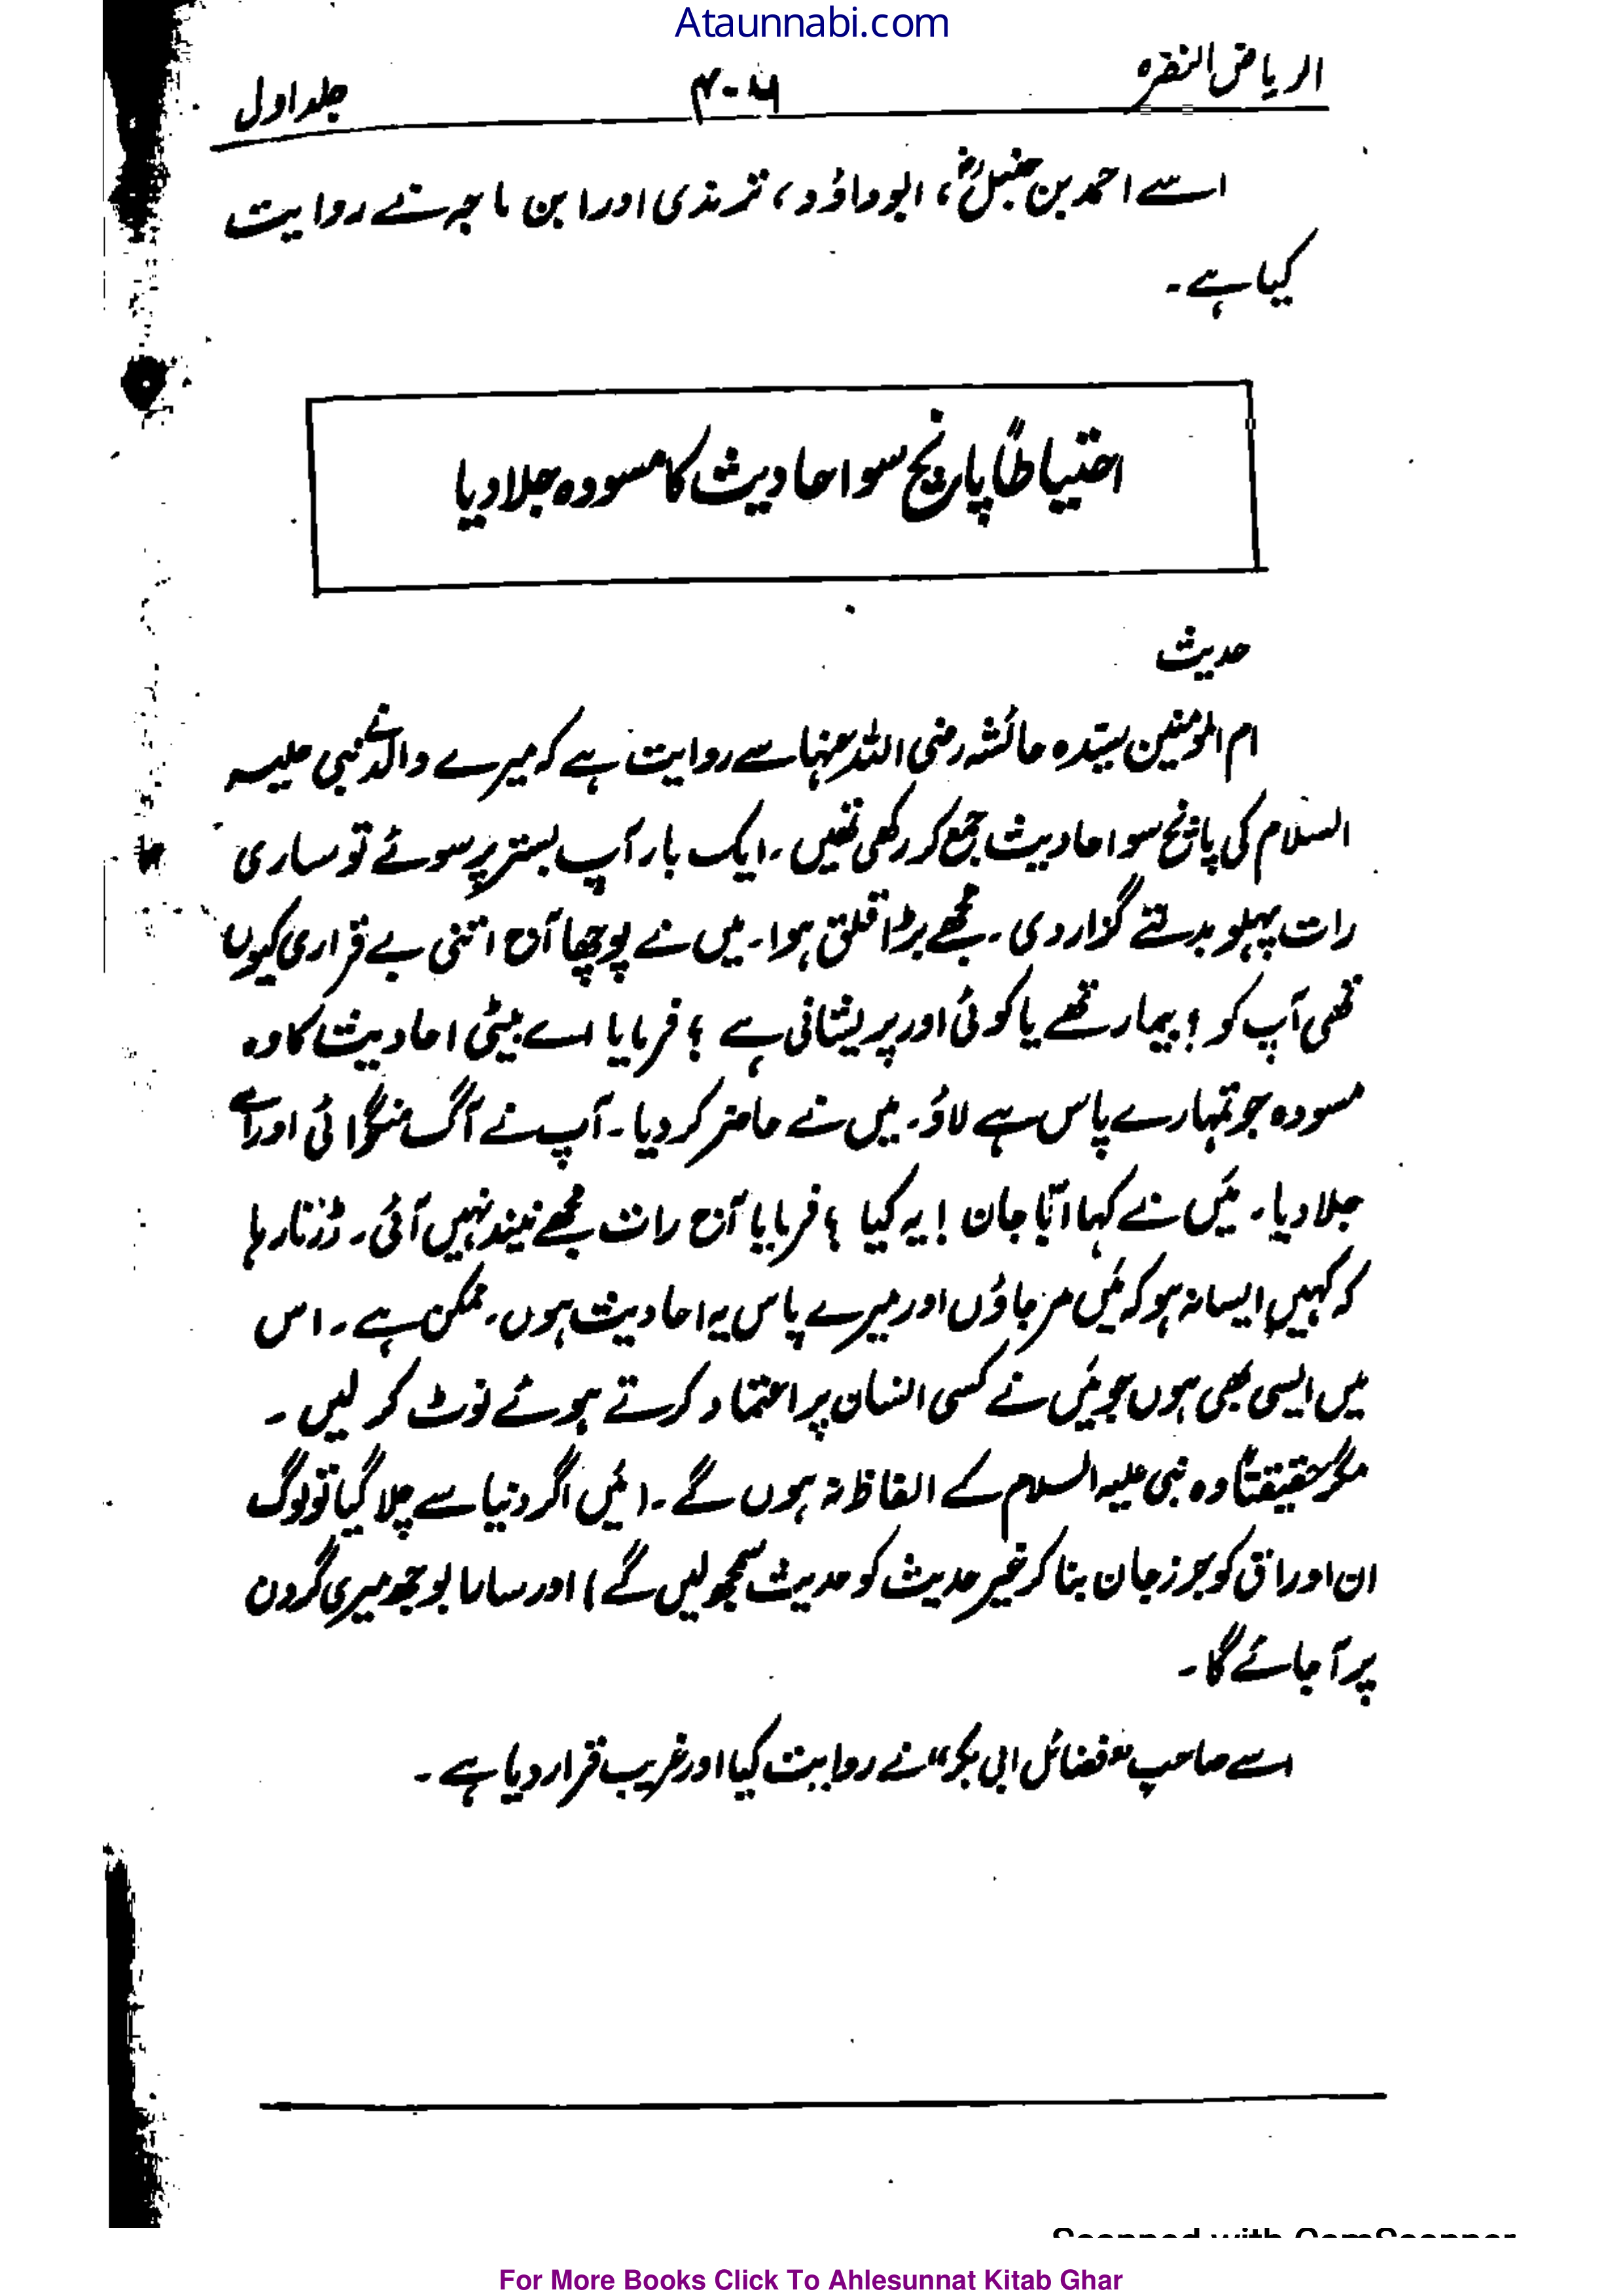 Ataunnabi.com
الریاض النضرہ ۴۰۶ جلد اول
اسے احمد بن حنبلؒ، ابوداؤد، ترمذی اور ابن ماجہ نے روایت
کیا ہے۔
احتیاطاً پانچ سو احادیث کا مسودہ جلا دیا
حدیث
ام المؤمنین سیّدہ عائشہ رضی اللہ عنہا سے روایت ہے کہ میرے والد نے نبی علیہ
السلام کی پانچ سو احادیث جمع کر رکھی تھیں۔ ایک بار آپ بستر پر سوئے تو ساری
رات پہلو بدلتے گزار دی۔ مجھے بڑا قلق ہوا۔ میں نے پوچھا آج اتنی بے قراری کیوں
تھی آپ کو ؟ بیمار تھے یا کوئی اور پریشانی ہے ؟ فرمایا اے بیٹی احادیث کا وہ
مسودہ جو تمہارے پاس ہے لاؤ۔ میں نے حاضر کر دیا۔ آپ نے آگ منگوائی اور اسے
جلا دیا۔ میں نے کہا ابّا جان ! یہ کیا ؟ فرمایا آج رات مجھے نیند نہیں آئی۔ ڈرتا رہا
کہ کہیں ایسا نہ ہو کہ میں مر جاؤں اور میرے پاس یہ احادیث ہوں۔ ممکن ہے۔ اس
میں ایسی بھی ہوں جو میں نے کسی انسان پر اعتماد کرتے ہوئے نوٹ کر لیں۔
مگر حقیقتاً وہ نبی علیہ السلام کے الفاظ نہ ہوں گے۔ (میں اگر دنیا سے چلا گیا تو لوگ
ان اوراق کو حرز جان بنا کر غیر حدیث کو حدیث سمجھ لیں گے) اور سارا بوجھ میری گردن
پر آ جائے گا۔
اسے صاحب "فضائل ابی بکر" نے روایت کیا اور غریب قرار دیا ہے۔
Scanned with CamScanner
For More Books Click To Ahlesunnat Kitab Ghar